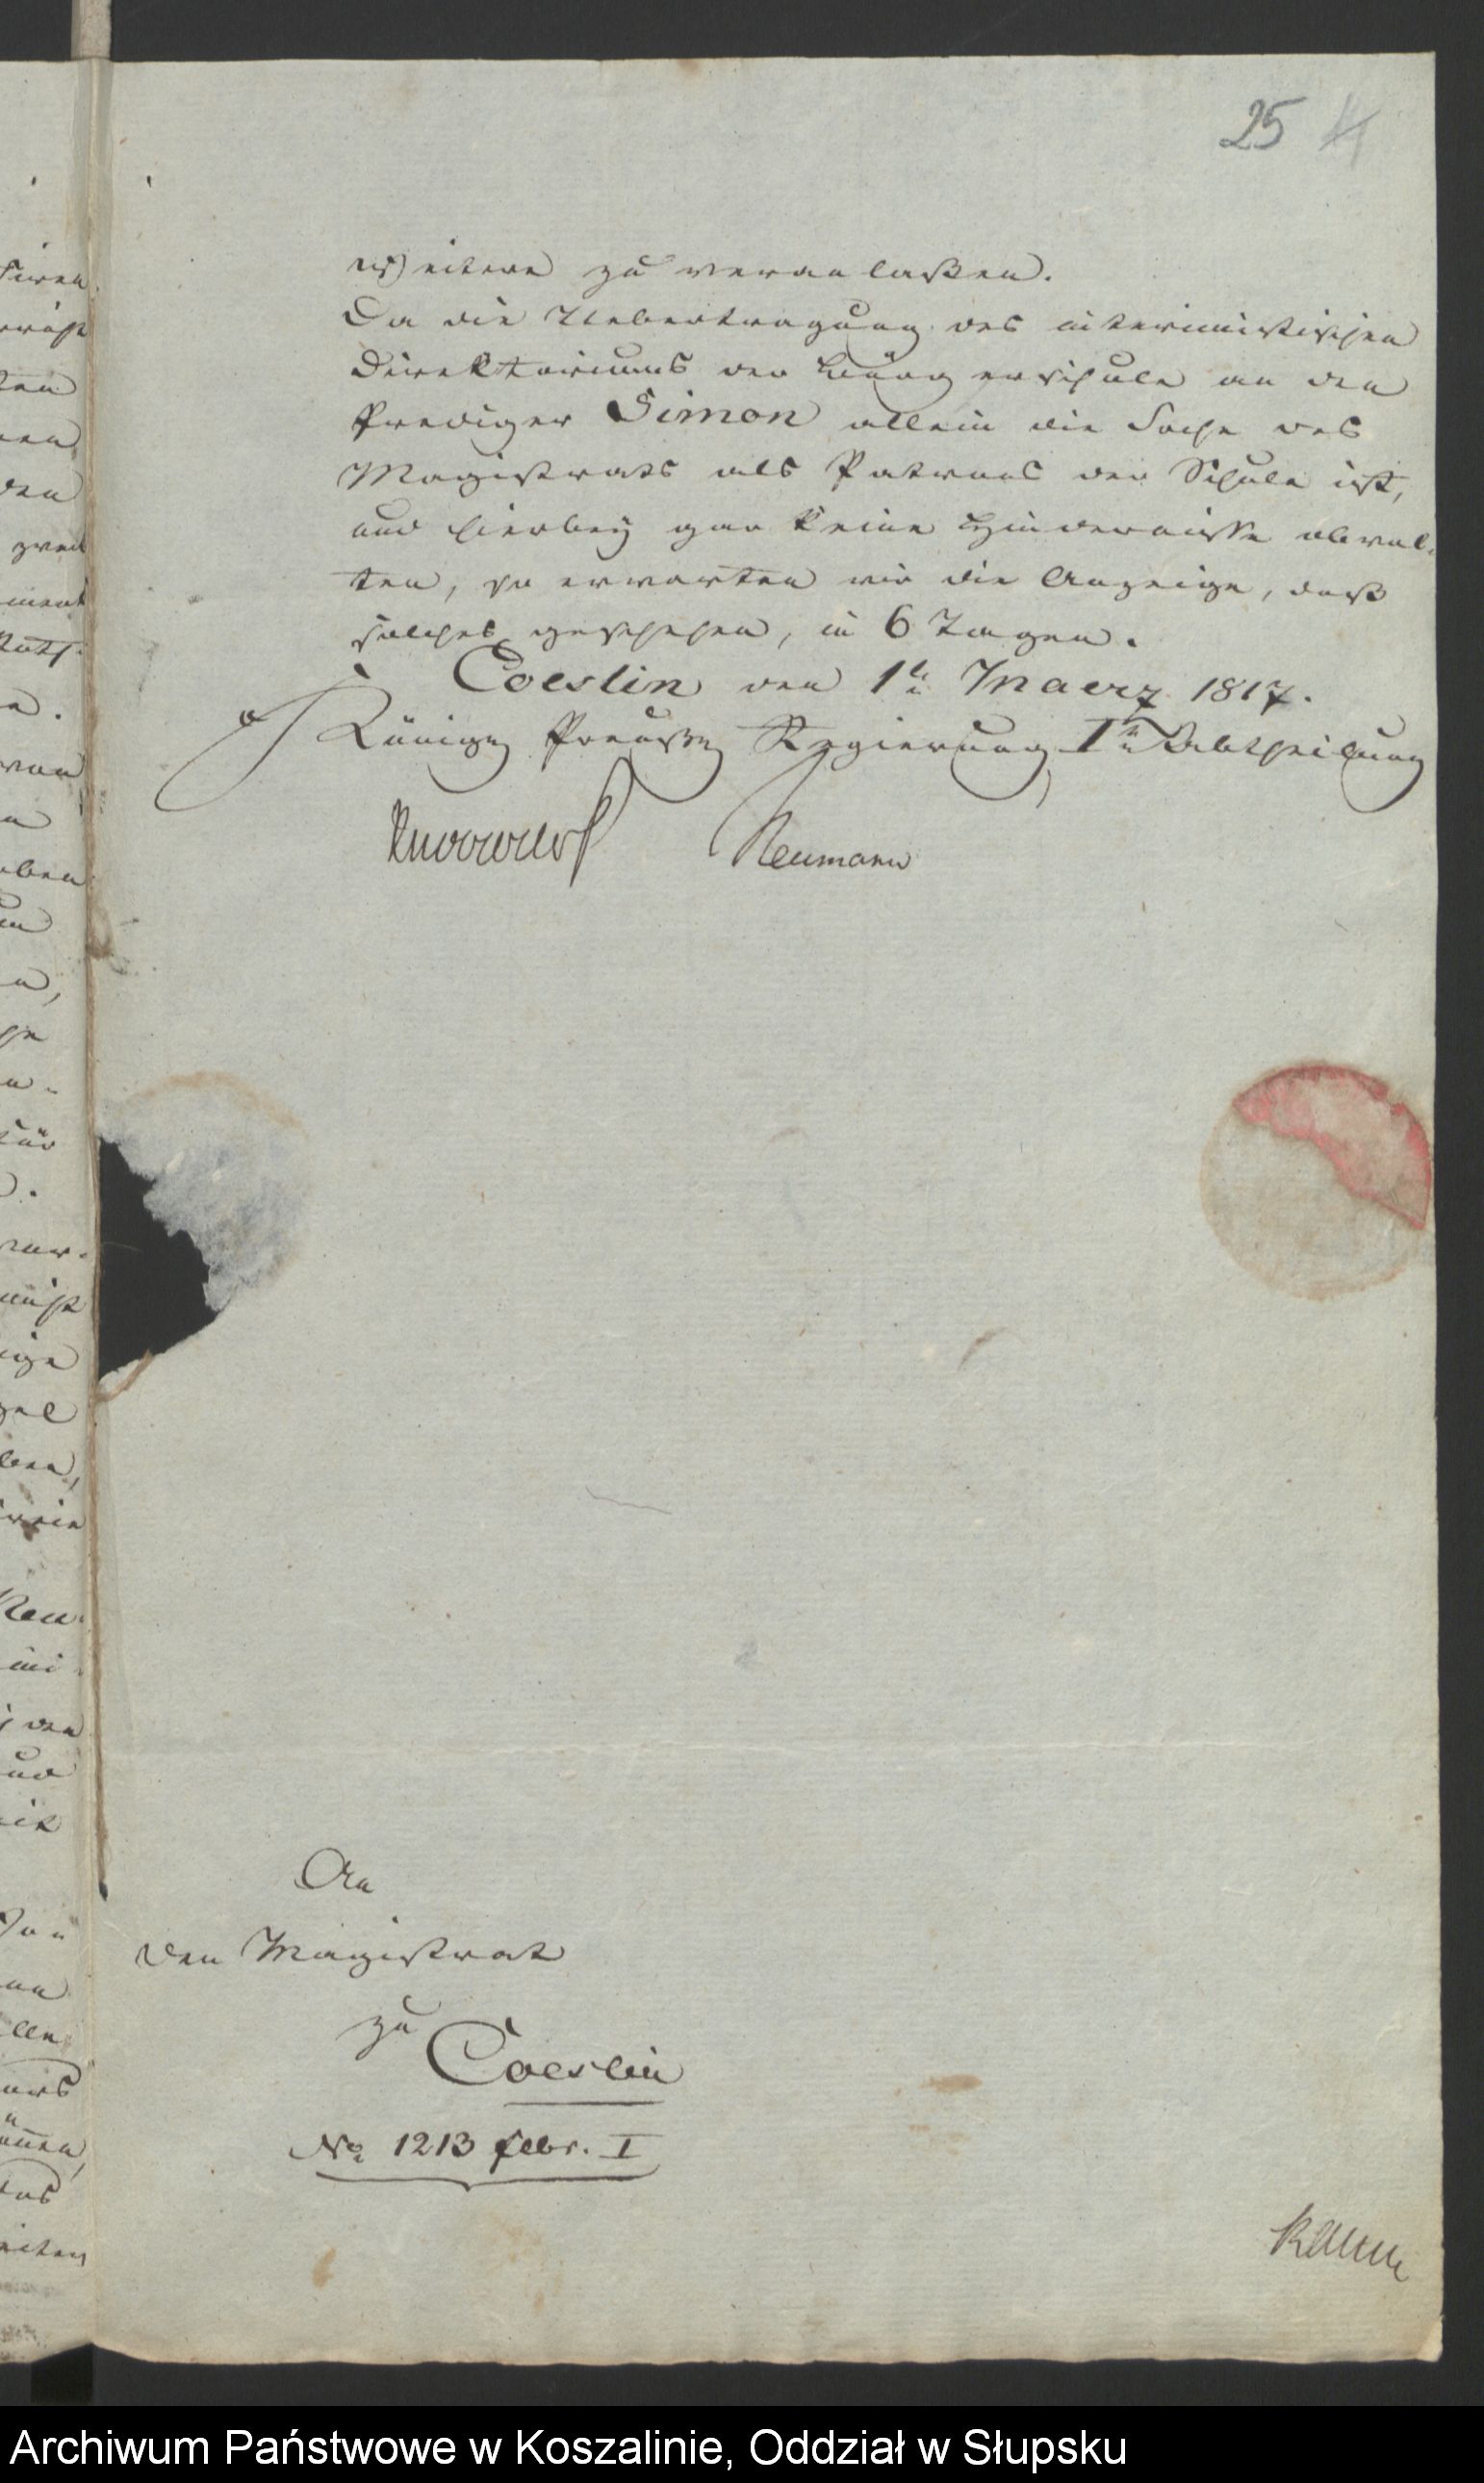 25
weitere zu veranlaßen.
Da die Uebertragung des interimistischen
Direktoriums der Bürgerschule an den
Prediger Simon allein die Sache des
Magistrats als Patrons der Schule ist,
und hierbey gar keine Hindernisse obwal-
ten, so erwarten wir die Anzeige, daß
solches geschehen, in 6 Tagen.
Coeslin den 1tn Maerz 1817.
Königl Preuß Regierung Ite Abtheilung
Neumann
An
den Magistrat
zu
Coeslin
No 1213 febr. I
Archiwum Państwowe w Koszalinie, Oddział w Słupsku